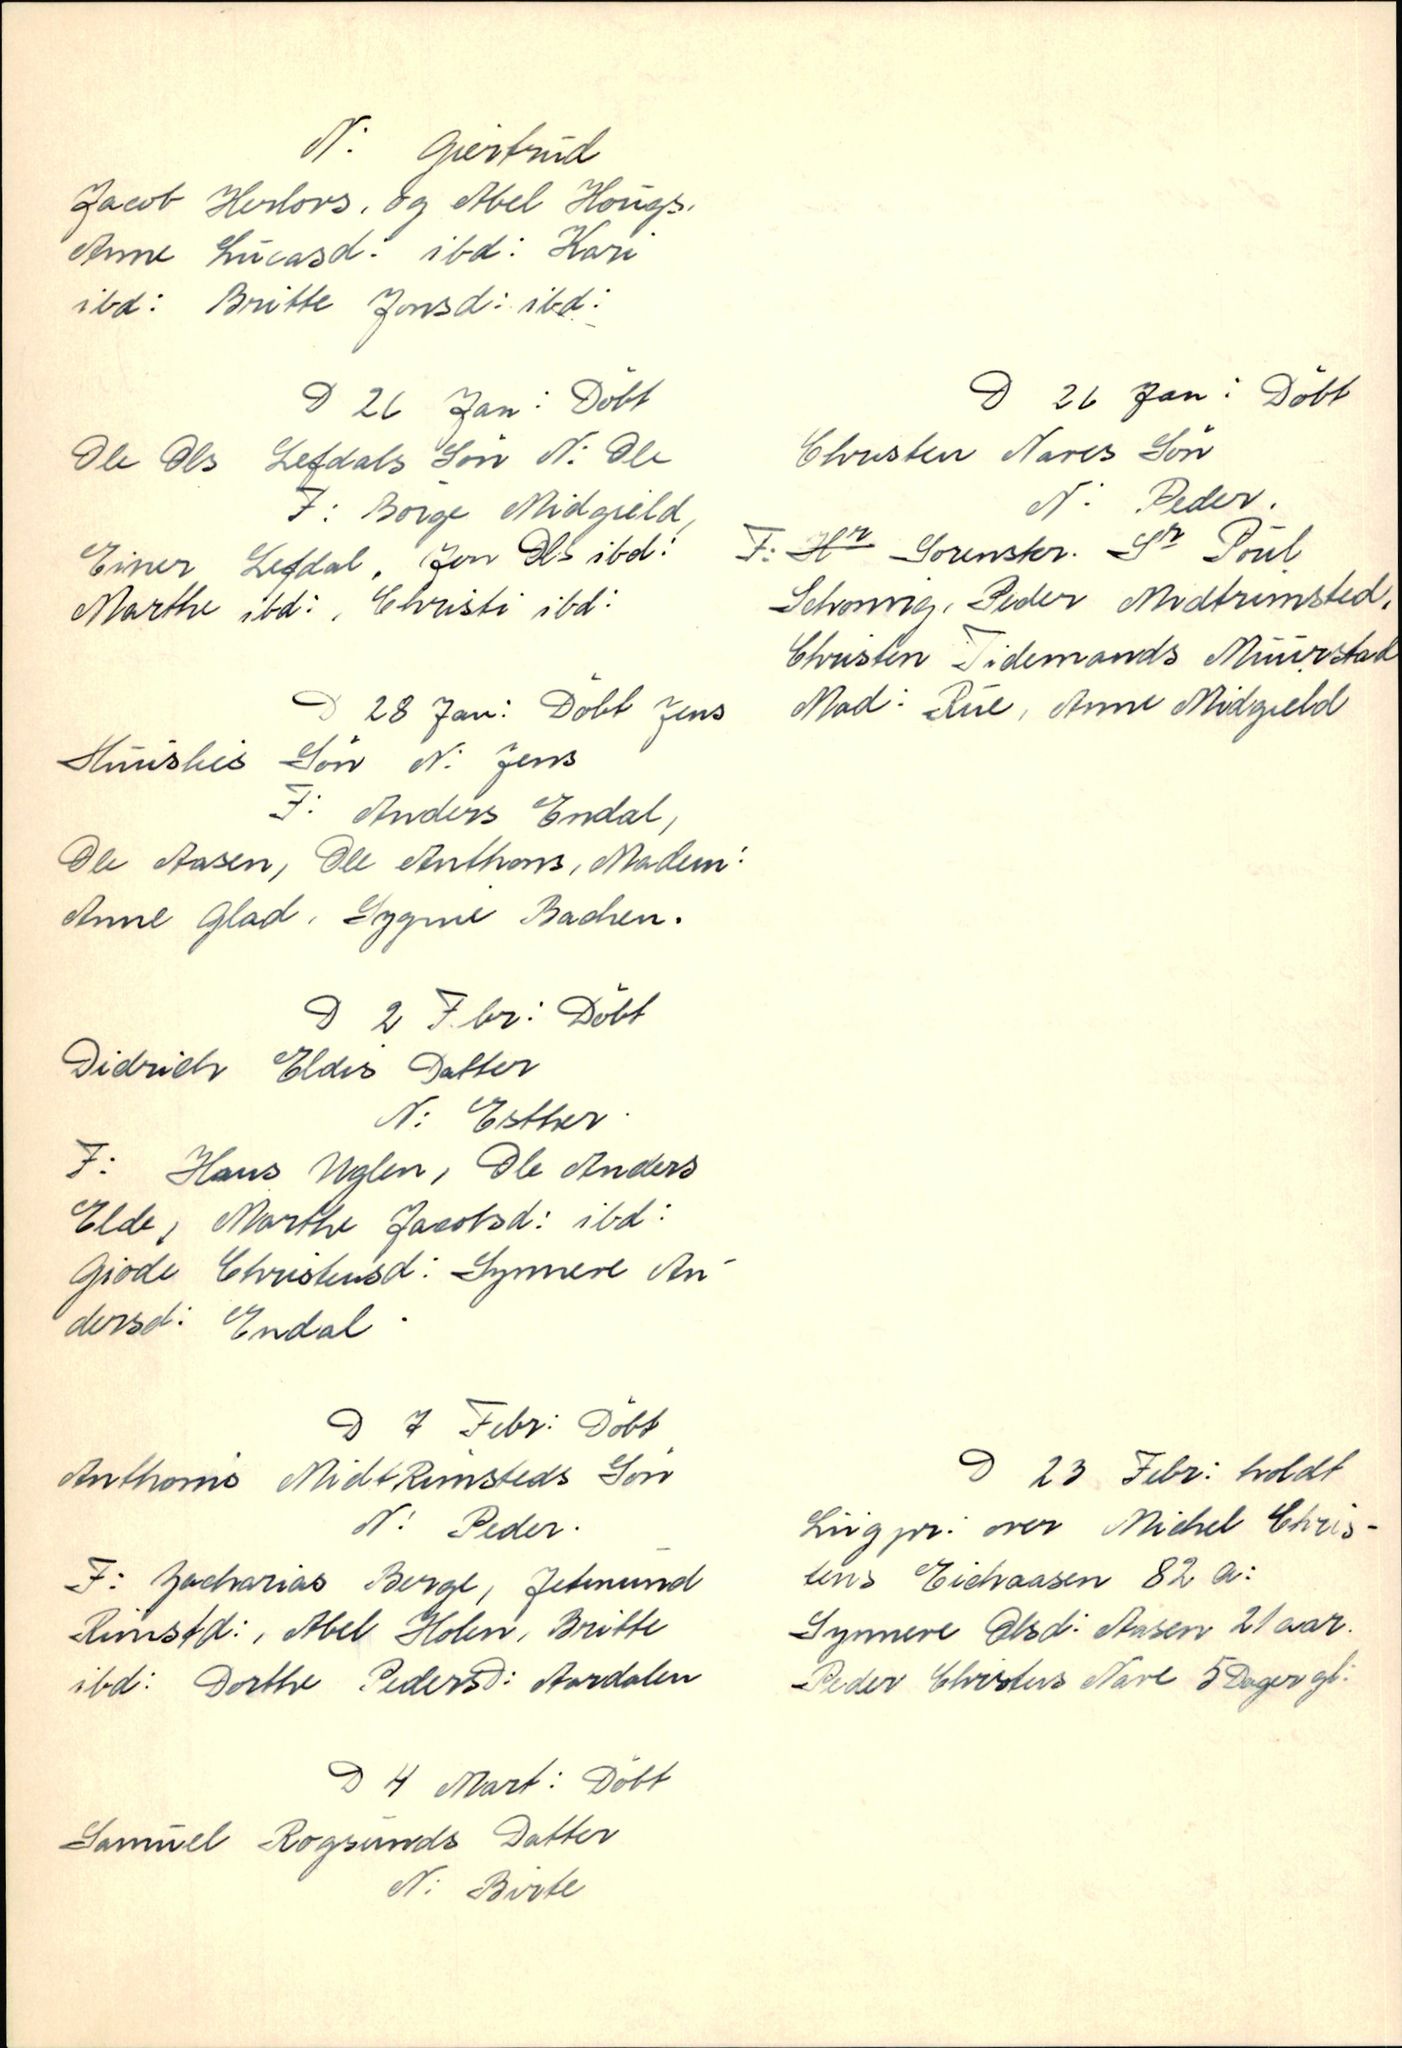 N: Giertrūd
Jacob Herlovs. og Abel Hougs.
Anne Lūcasd: ibd: Kari
ibd: Britte Jonsd: ibd:
D 26 Jan: Döbt
Ole Ols Lefdals Sön N: Ole
F: Börge Midgield,
Einer Lefdal, Jon Ols ibd:
Marthe ibd:, Christi ibd:
D 28 Jan: Döbt Jens
Sön N: Jens
F: Anders Endal,
Ole Aasen, Ole Anthons, Madem:
Anne Glad, Sygnie Bachen.
D 2 Fbr: Döbt
Didrich Eldis Datter
N: Esther.
F: Hans Uglen, Ole Anders
Elde, Marthe Jacobsd: ibd:
Giode Christensd: Synnere An-
dersd: Endal.
D 7 Febr: Döbt
Anthonis Midt Rimsteds Sön
N: Peder.
F: Zacharias Berge, Jetmūnd
Rimstd:, Abel Holen, Britte
ibd: Dorthe PedersD: Aardalen
D 4 Mart: Döbt
Samūel Rogsūnds Datter
N: Birte
D 26 Jan: Döbt
Christen Nares Sön
N: Peder.
F: Hr Sorenskr. Sr Poūl
Schonvig, Peder Midtrimsted,
Christen Tidemands Mūūrstad
Mad: Rūe, Anne Midgield
D 23 Febr: holdt
Liigpr: over Michel Chris-
tens Eichaasen 82 a:
Synnere Olsd: Aasen 21 aar.
Peder Christens Nare 5 Dager gl: